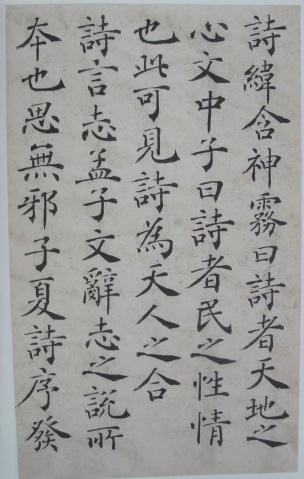 詩緯含神霧曰詩者天地之
心文中子曰詩者民之性情
也此可見詩為天人之合
詩言志孟子文辭志之說所
本也思無邪子夏詩序發